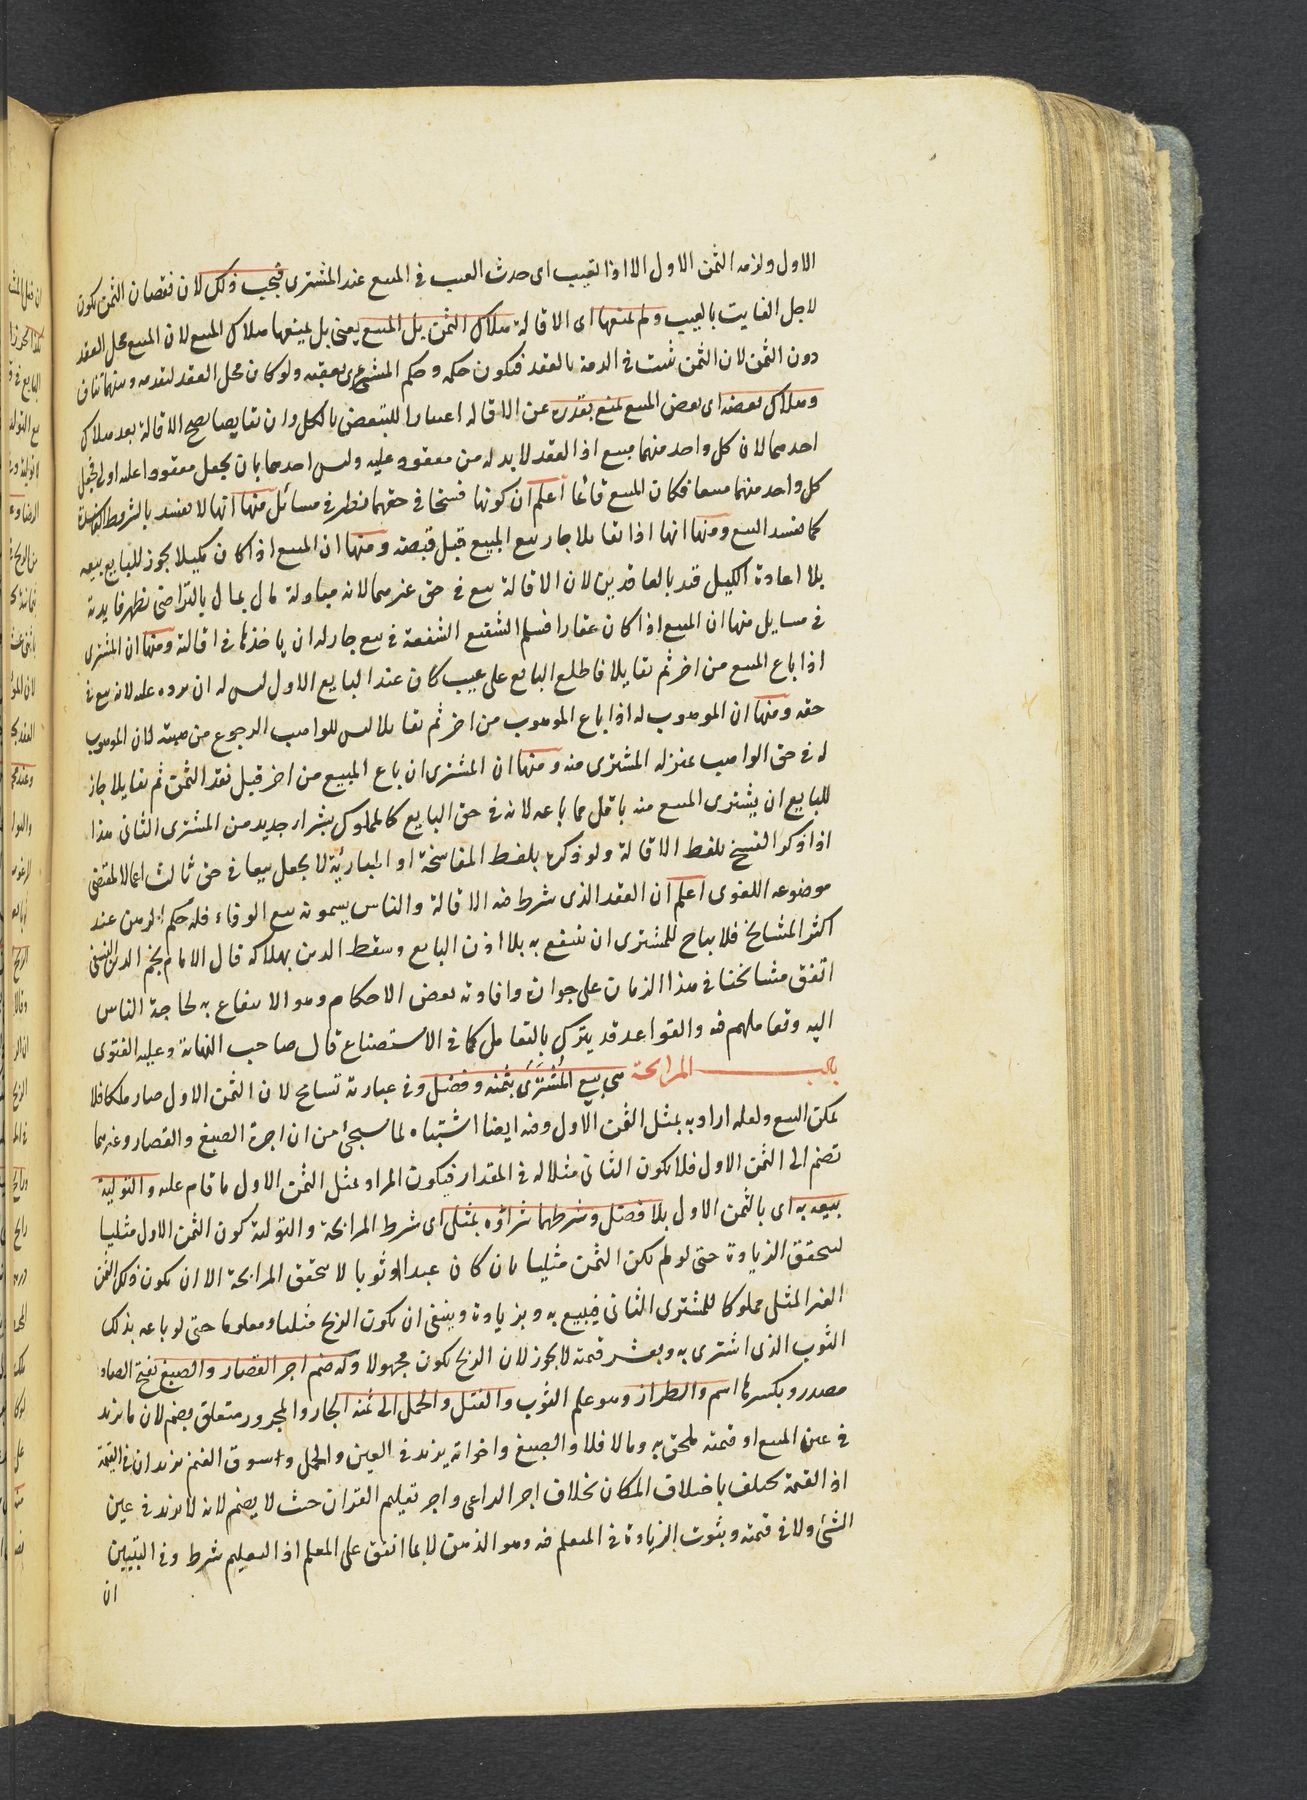 الاول ولزمه الثمن الاول الا اذا تعيب اى حدث العيب فى المبيع عند المشترى فيجب ذلك لان نقصان الثمن يكون
لاجل الفايت بالعيب ولم يمنعها اى الاقالة هلاك الثمن بل المبيع يعنى بل يمنعها هلاك المبيع لان المبيع محل العقد
دون الثمن لان الثمن يثبت فى الذمة بالعقد فيكون حكمه وحكم الشىء يعقبه ولو كان محل العقد لتقدمه وبينهما تناف
وهلاك بعضه اى بعض المبيع يمنع بقدره عن الاقالة اعتبارا للبعض بالكل وان تقايضا يصح الاقالة بعد هلاك
احدهما لان كل واحد منهما مبيع اذ العقد لا بد له من معقود عليه وليس احدهما بان يجعل معقودا عليه اولى فجعل
كل واحد منهما مبيعا فكان المبيع قائما اعلم ان كونها فسخا فى حقهما يظهر فى مسائل منها انها لا تفسد بالشروط الفاسدة
كما يفسد البيع ومنها انها اذا تقايلا جاز بيع المبيع قبل قبضه ومنها ان المبيع اذا كان مكيلا يجوز للبايع بيعه
بلا اعادة الكيل قيد بالعاقدين لان الاقالة بيع فى حق غيرهما لانه مبادلة مال بمال بالتراضى تظهر فايدته
فى مسايل منها ان المبيع اذا كان عقارا فسلم الشفيع الشفعة فى بيع جاز له ان ياخذها فى اقالة ومنها ان المشترى
اذا باع المبيع من اخر ثم تقايلا فاطلع البايع على عيب كان عند البايع الاول ليس له ان يرده عليه لانه بيع فى
حقه ومنها ان الموهوب له اذا باع الموهوب من اخر ثم تقايلا ليس للواهب الرجوع من هبته لان الموهوب
له فى حق الواهب بمنزلة المشترى منه ومنها ان المشترى ان باع المبيع من اخر قبل نقد الثمن ثم تقايلا جاز
للبايع ان يشترى المبيع منه باقل مما باعه لانه فى حق البايع كالمملوك بشراء جديد من المشترى الثانى هذا
اذا ذكر الفسخ بلفظ الاقالة ولو ذكر بلفظ المفاسخة او المباريئة لا يجعل بيعا فى حق ثالث اعمالا لمقتضى
موضوعه اللغوى اعلم ان العقد الذى شرط فيه الاقالة والناس يسمونه بيع الوفاء فله حكم الرهن عند
اكثر المشايخ فلا يباح للمشترى ان ينتفع به بلا اذن البايع وسقط الدين بهلاكه قال الامام نجم الدين النسفى
اتفق مشايخنا فى هذا الزمان على جوازه وافادته بعض الاحكام وهو الانتفاع به لحاجة الناس
اليه وتعاملهم فيه والقواعد قد يترك بالتعامل كما فى الاستصناع قال صاحب النهاية وعليه الفتوى
باب المرابحة هى بيع المُشْتَرَى بثمنه وفضل وفى عبارته تسامح لان الثمن الاول صار ملكا فلا
يمكن البيع ولعله اراد به بمثل الثمن الاول وفيه ايضا اشتباه لما سيجئ من ان اجرة الصبغ والقصار وغيرهما
تضم الى الثمن الاول فلا يكون الثانى مثلا له فى المقدار فيكون المراد بمثل الثمن الاول ما قام عليه والتولية
بيعه به اى بالثمن الاول بلا فضل وشرطهما شراؤه بمثلى اى شرط المرابحة والتولية كون الثمن الاول مثليا
ليتحقق الزيادة حتى لو لم يكن الثمن مثليا بان كان عبدا او ثوبا لا يتحقق المرابحة الا ان يكون ذلك الثمن
الغير المثلى مملوكا للمشترى الثانى فيبيع به وبزيادة وينبغى ان يكون الربح مثليا ومعلوما حتى لو باعه بذلك
الثوب الذى اشترى به وبعشر قيمته لا يجوز لان الربح يكون مجهولا وله ضم اجر القصار والصبغ بفتح الصاد
مصدر وبكسرها اسم والطراز وهو علم الثوب والفتل والحمل الى ثمنه الجار والمجرور متعلق بضم لان ما يزيد
فى عين المبيع او قيمته يلحق به وما لا فلا والصبغ واخواته يزيد فى العين والحمل وسوق الغنم يزيدان فى القيمة
اذ القيمة تختلف باختلاف المكان بخلاف اجر الراعى واجر تعليم القران حيث لا يضم لانه لا يزيد فى عين
الشئ ولا فى قيمته وثبوت الزيادة فى المتعلم فيه وهو الذهن لا بما انفق على المعلم اذ التعليم شرط وفى التبيين
ان